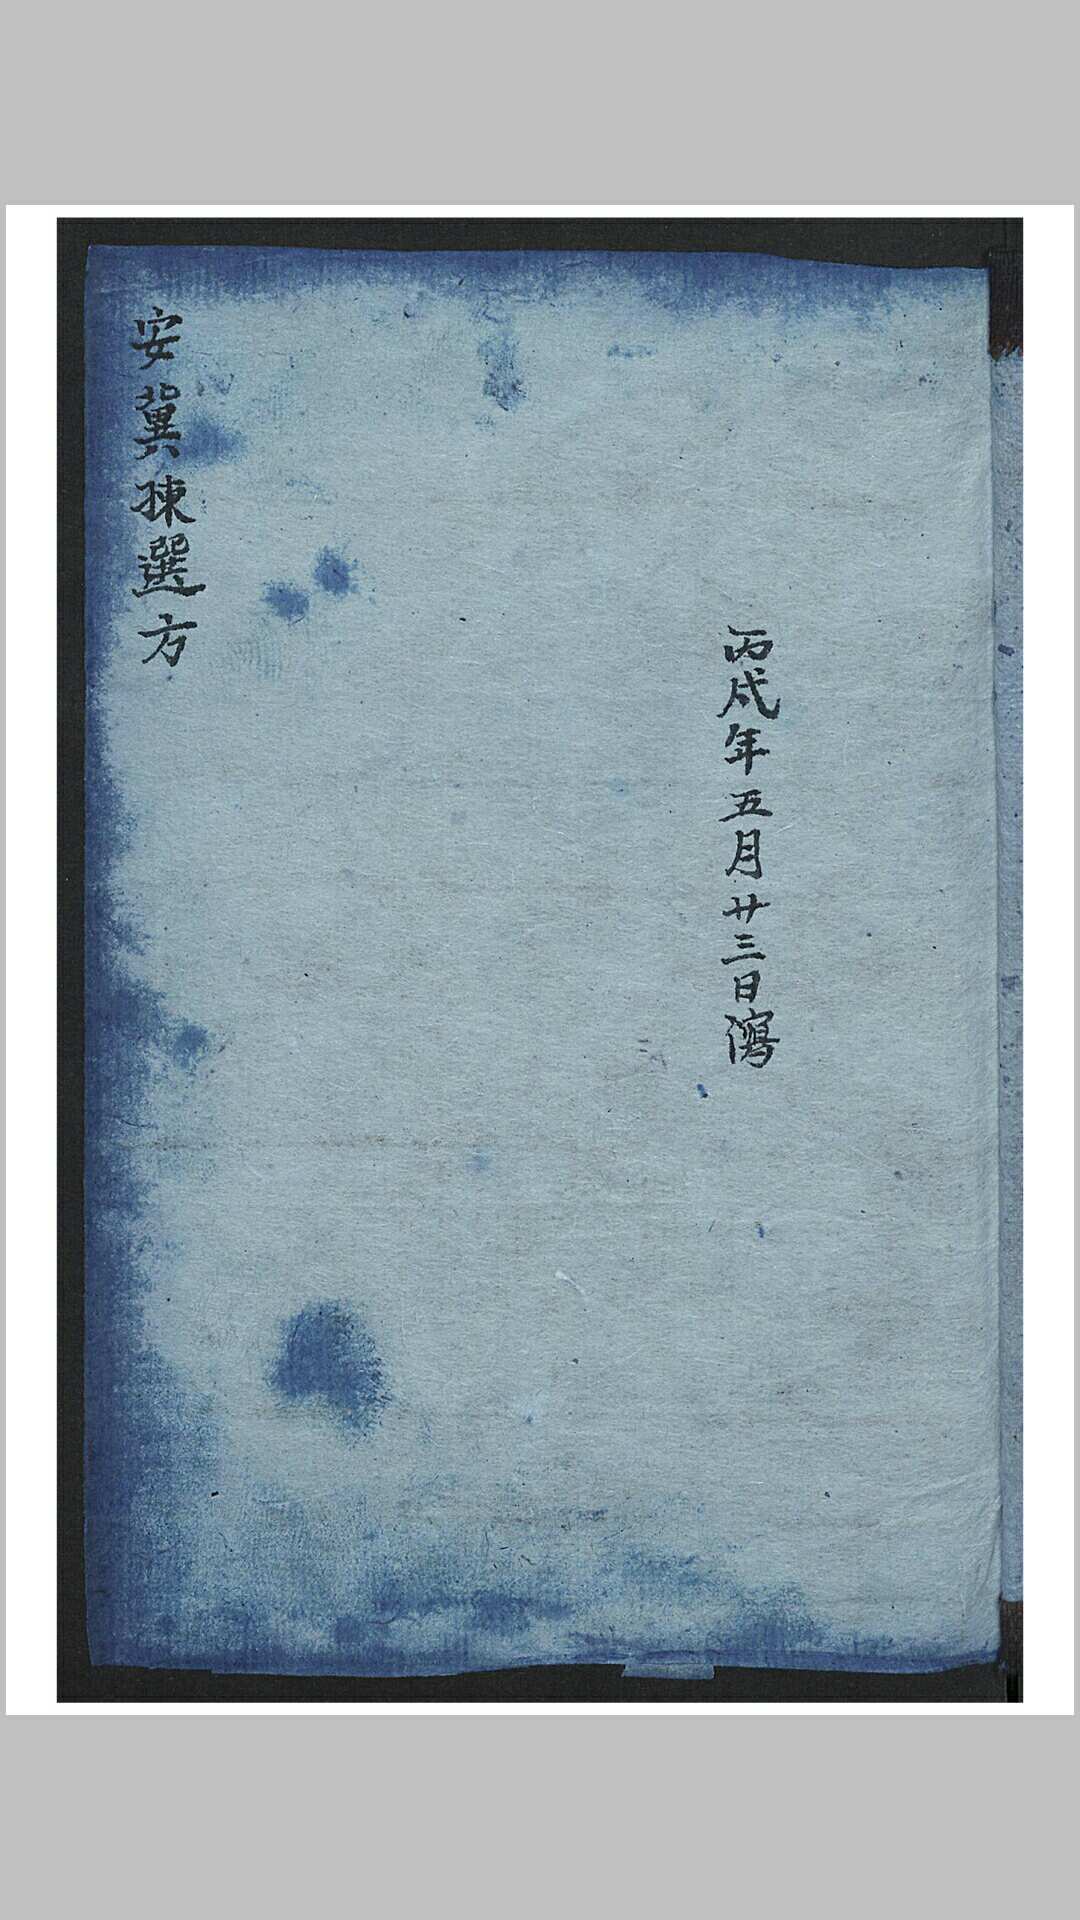 丙戍年五月廿三日瀉
安冀揀選方